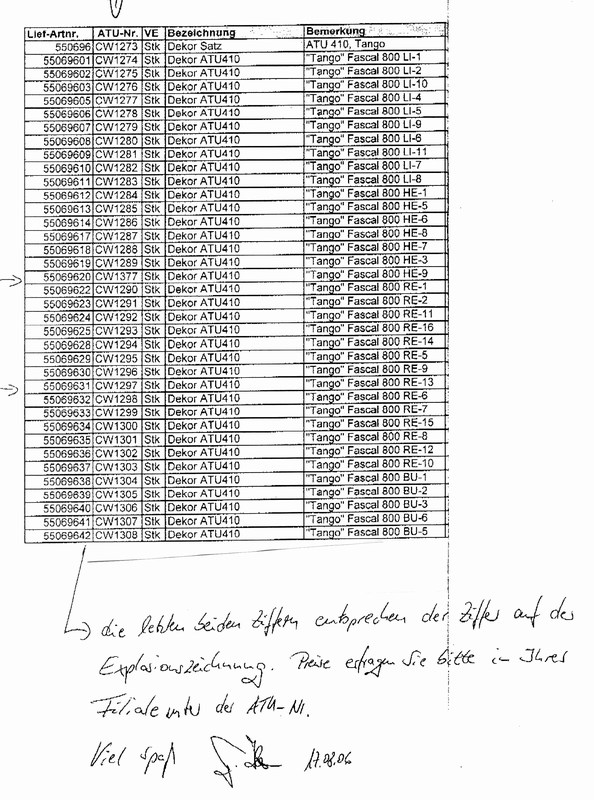 Lief-Artnr. ATU-Nr. VE Bezeichnung Bemerkung
550696 CW1273 Stk Dekor Satz ATU 410, Tango
55069601 CW1274 Stk Dekor ATU410 "Tango" Fascal 800 LI-1
55069602 CW1275 Stk Dekor ATU410 "Tango" Fascal 800 LI-2
55069603 CW1276 Stk Dekor ATU410 "Tango" Fascal 800 LI-10
55069605 CW1277 Stk Dekor ATU410 "Tango" Fascal 800 LI-4
55069606 CW1278 Stk Dekor ATU410 "Tango" Fascal 800 LI-5
55069607 CW1279 Stk Dekor ATU410 "Tango" Fascal 800 LI-9
55069608 CW1280 Stk Dekor ATU410 "Tango" Fascal 800 LI-6
55069609 CW1281 Stk Dekor ATU410 "Tango" Fascal 800 LI-11
55069610 CW1282 Stk Dekor ATU410 "Tango" Fascal 800 LI-7
55069611 CW1283 Stk Dekor ATU410 "Tango" Fascal 800 LI-8
55069612 CW1284 Stk Dekor ATU410 "Tango" Fascal 800 HE-1
55069613 CW1285 Stk Dekor ATU410 "Tango" Fascal 800 HE-5
55069614 CW1286 Stk Dekor ATU410 "Tango" Fascal 800 HE-6
55069617 CW1287 Stk Dekor ATU410 "Tango" Fascal 800 HE-8
55069618 CW1288 Stk Dekor ATU410 "Tango" Fascal 800 HE-7
55069619 CW1289 Stk Dekor ATU410 "Tango" Fascal 800 HE-3
55069620 CW1377 Stk Dekor ATU410 "Tango" Fascal 800 HE-9
55069622 CW1290 Stk Dekor ATU410 "Tango" Fascal 800 RE-1
55069623 CW1291 Stk Dekor ATU410 "Tango" Fascal 800 RE-2
55069624 CW1292 Stk Dekor ATU410 "Tango" Fascal 800 RE-11
55069625 CW1293 Stk Dekor ATU410 "Tango" Fascal 800 RE-16
55069628 CW1294 Stk Dekor ATU410 "Tango" Fascal 800 RE-14
55069629 CW1295 Stk Dekor ATU410 "Tango" Fascal 800 RE-5
55069630 CW1296 Stk Dekor ATU410 "Tango" Fascal 800 RE-9
55069631 CW1297 Stk Dekor ATU410 "Tango" Fascal 800 RE-13
55069632 CW1298 Stk Dekor ATU410 "Tango" Fascal 800 RE-6
55069633 CW1299 Stk Dekor ATU410 "Tango" Fascal 800 RE-7
55069634 CW1300 Stk Dekor ATU410 "Tango" Fascal 800 RE-15
55069635 CW1301 Stk Dekor ATU410 "Tango" Fascal 800 RE-8
55069636 CW1302 Stk Dekor ATU410 "Tango" Fascal 800 RE-12
55069637 CW1303 Stk Dekor ATU410 "Tango" Fascal 800 RE-10
55069638 CW1304 Stk Dekor ATU410 "Tango" Fascal 800 BU-1
55069639 CW1305 Stk Dekor ATU410 "Tango" Fascal 800 BU-2
55069640 CW1306 Stk Dekor ATU410 "Tango" Fascal 800 BU-3
55069641 CW1307 Stk Dekor ATU410 "Tango" Fascal 800 BU-6
55069642 CW1308 Stk Dekor ATU410 "Tango" Fascal 800 BU-5
die letzten beiden Ziffern entsprechen der Ziffer auf der
Explosionszeichnung. Preise erfragen Sie bitte in Ihrer
Filiale unter der ATU-Nr.
Viel Spaß 17.08.06